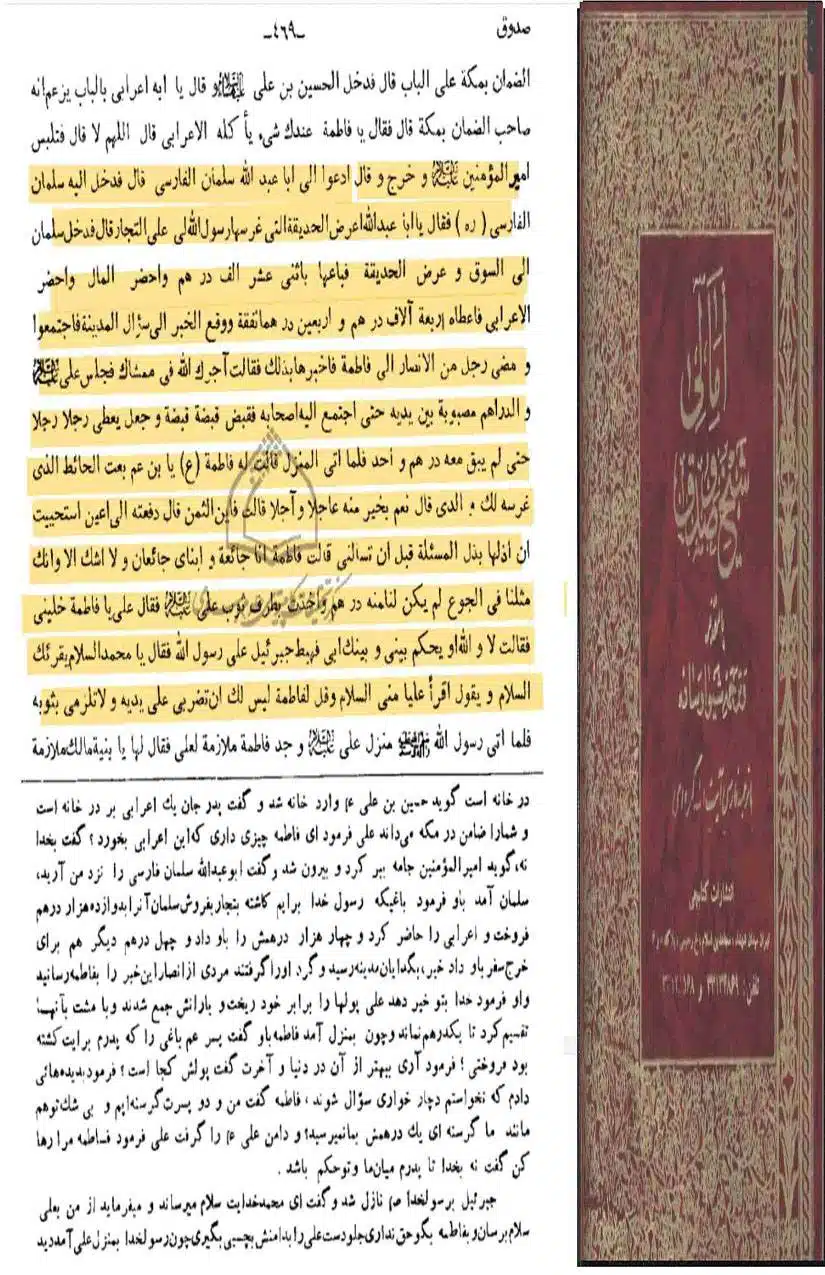 صدوق
-٤٦٩-
الضمان بمكة على الباب قال فدخل الحسين بن على عليهما السلام و قال يا ابه اعرابى بالباب يزعم انه
صاحب الضمان بمكة قال فقال يا فاطمة عندك شىء يأكله الاعرابى قال اللهم لا قال فتلبس
امير المؤمنين عليه السلام و خرج و قال ادعوا الى ابا عبد الله سلمان الفارسى قال فدخل اليه سلمان
الفارسى ( ره ) فقال يا ابا عبدالله اعرض الحديقة التى غرسها رسول الله لى على التجار قال فدخل سلمان
الى السوق و عرض الحديقة فباعها باثنى عشر الف درهم واحضر المال واحضر
الاعرابى فاعطاه اربعة آلاف درهم و اربعين درهما نفقة ووقع الخبر الى سؤال المدينة فاجتمعوا
و مضى رجل من الانصار الى فاطمة فاخبرها بذلك فقالت آجرك الله فى ممشاك فجلس على عليه السلام
و الدراهم مصبوبة بين يديه حتى اجتمع اليه اصحابه فقبض قبضة قبضة و جعل يعطى رجلا رجلا
حتى لم يبق معه درهم و احد فلما اتى المنزل قالت له فاطمة (ع) يا بن عم بعت الحائط الذى
غرسه لك و الدى قال نعم بخير منه عاجلا و آجلا قالت فاين الثمن قال دفعته الى اعين استحييت
ان اذلها بذل المسئلة قبل ان تسالنى قالت فاطمة انا جائعة و ابناى جائعان و لا اشك الا وانك
مثلنا فى الجوع لم يكن لنا منه درهم واخذت بطرف ثوب على عليه السلام فقال على يا فاطمة خلينى
فقالت لا و الله او يحكم بينى و بينك ابى فهبط جبرئيل على رسول الله فقال يا محمد السلام يقرئك
السلام و يقول اقرأ عليا منى السلام وقل لفاطمة ليس لك ان تضربى على يديه و لا تلزمى بثوبه
فلما اتى رسول الله منزل على عليه السلام و جد فاطمة ملازمة لعلى فقال لها يا بنية مالك ملازمة
در خانه است گويد حسين بن على ع وارد خانه شد و گفت پدر جان يك اعرابى بر در خانه است
و شما را ضامن در مكه مى‌داند على فرمود اى فاطمه چيزى دارى كه اين اعرابى بخورد؟ گفت بخدا
نه، گويد امير المؤمنين جامه ببر كرد و بيرون شد و گفت ابو عبدالله سلمان فارسى را نزد من آريد،
سلمان آمد باو فرمود باغيكه رسول خدا برايم كاشته بتجار بفروش سلمان آنرا بدوازده هزار درهم
فروخت و اعرابى را حاضر كرد و چهار هزار درهمش را باو داد و چهل درهم ديگر هم براى
خرج سفر باو داد خبر، بگدايان مدينه رسيد و گرد او را گرفتند مردى از انصار اين خبر را بفاطمه رسانيد
واو فرمود خدا بتو خير دهد على پولها را برابر خود ريخت و يارانش جمع شدند و با مشت بآنها
تقسيم كرد تا يكدرهم نماند و چون بمنزل آمد فاطمه باو گفت پسر عم باغى را كه پدرم برايت كشته
بود فروختى؟ فرمود آرى ببهتر از آن در دنيا و آخرت گفت پولش كجا است؟ فرمود بديده‌هائى
دادم كه نخواستم دچار خوارى سؤال شوند، فاطمه گفت من و دو پسرت گرسنه‌ايم و بى شك توهم
مانند ما گرسنه اى يك درهمش بما نميرسيد؟ و دامن على ع را گرفت على فرمود فاطمه مرا رها
كن گفت نه بخدا تا پدرم ميان ما و تو حكم باشد .
جبرئيل برسولخدا ص نازل شد و گفت اى محمد خدايت سلام ميرساند و ميفرمايد از من بعلى
سلام برسان و بفاطمه بگو حق ندارى جلو دست على را بدامنش بچسبى بگيرى چون رسولخدا بمنزل على آمد ديد
امالى
شيخ صدوق
انتشارات كتابچى